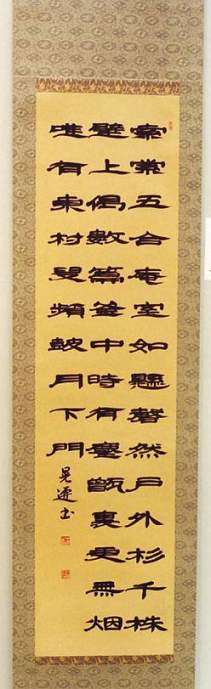 索索五合庵室如懸磬然戸外杉千株
壁上偈數篇釜中時有塵甑裏更無烟
唯有東村叟頻敲月下門
書